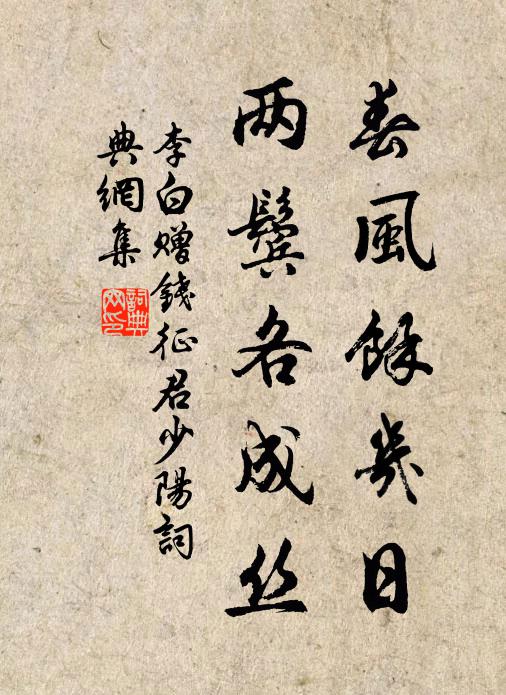 春風餘幾日
两鬢各成丝
李白赠錢征君少陽詞
典網集
詞典
网印